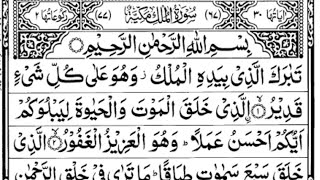 اٰیَاتُهَا ٣٠ (٦٧) سُوْرَةُ الْمُلْكِ مَكِّيَّةٌ (٧٧) رُكُوْعَاتُهَا ٢
بِسْمِ اللهِ الرَّحْمٰنِ الرَّحِيْمِ
تَبٰرَكَ الَّذِيْ بِيَدِهِ الْمُلْكُ ز وَهُوَ عَلٰى كُلِّ شَيْءٍ
قَدِيْرُ ۙ﴿١﴾ الَّذِيْ خَلَقَ الْمَوْتَ وَالْحَيٰوةَ لِيَبْلُوَكُمْ
اَيُّكُمْ اَحْسَنُ عَمَلًا ؕ وَهُوَ الْعَزِيْزُ الْغَفُوْرُ ۙ﴿٢﴾ الَّذِيْ
خَلَقَ سَبْعَ سَمٰوٰتٍ طِبَاقًا ؕ مَا تَرٰى فِيْ خَلْقِ الرَّحْمٰنِ